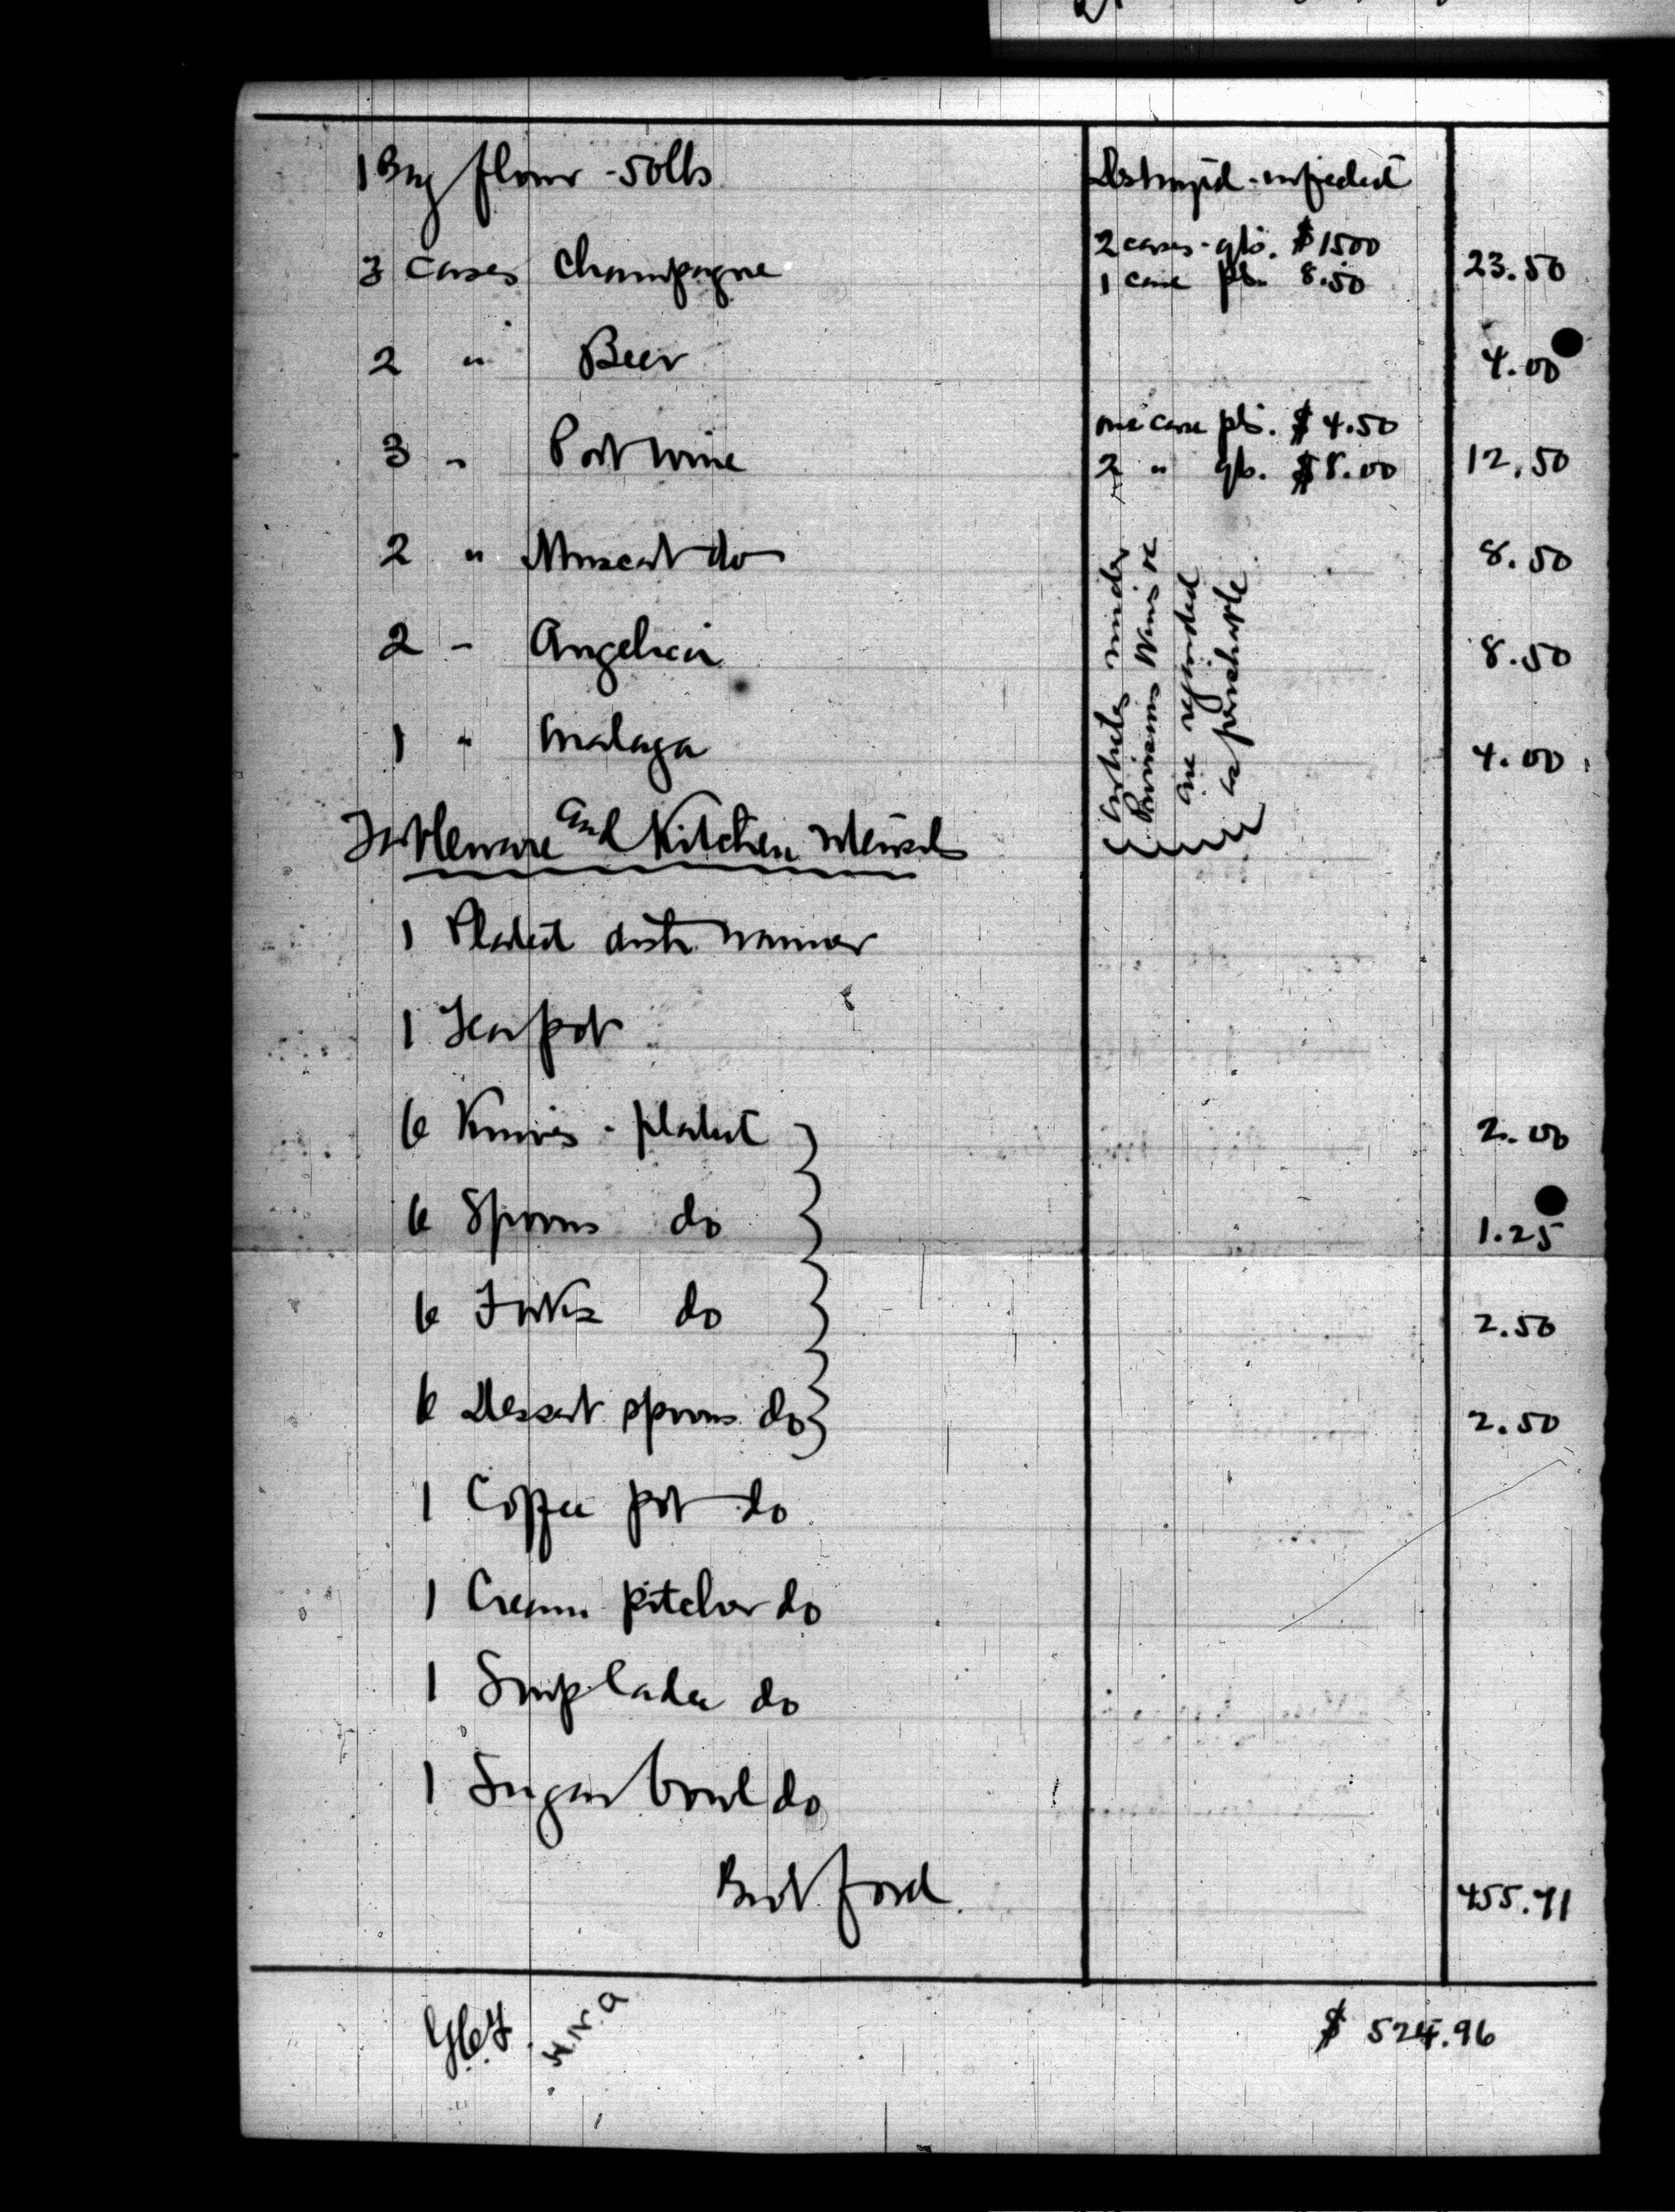 1 Bag flour - 50 lbs Destroyed - infected
3 Cases Champagne 2 cases - qts. $1500 23.50
1 case pts. 8.50
2 " Beer 4.00
3 " Port wine one case pts. $4.50 12.50
2 " qts. $8.00
2 " Muscat do 8.50
2 " Angelica 8.50
1 " Malaga 4.00
Articles under
Provisions Wines &c
are regarded
as perishable
Tableware and Kitchen utensils
1 Plated dish warmer
1 Tea pot
6 Knives - plated 2.00
6 Spoons do 1.25
6 Forks do 2.50
6 Dessert spoons do 2.50
1 Coffee pot do
1 Cream pitcher do
1 Soup Ladle do
1 Sugar bowl do
Brot ford. 455.71
H.N.A
$ 524.96